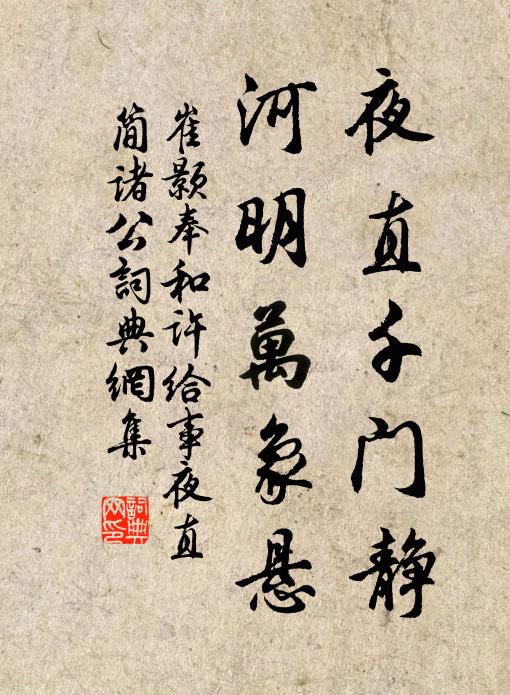 夜直千门静
河明萬象悬
崔颢奉和许给事夜直
简诸公詞典網集
詞典
网印